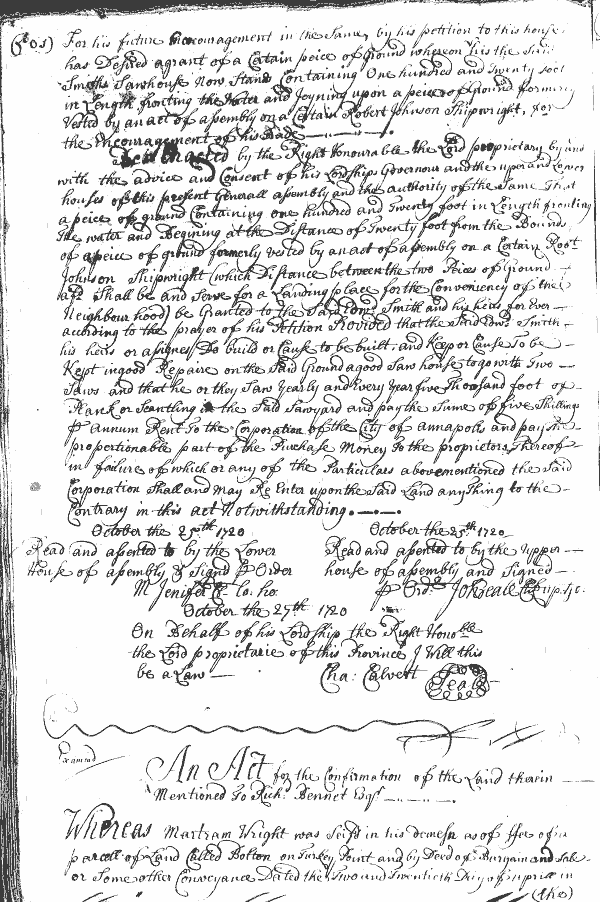 (501) For his future Incouragement in the Same, by his petition to this house
has Desired a grant of a Certain peice of Ground whereon lies the Said
Smiths Sawhouse Now Stand Containing One hundred and Twenty foot
in Length fronting the Water and Joyning upon a peice of Ground formerly
Vested by an act of assembly on a Certain Robert Johnson Shipwright, for
the encouragement of his Trade
Be it Enacted by the Right Honourable the Lord proprietary by and
with the advice and Consent of his Lordships Governour and the uper and Lower
houses of this present Generall assembly and the authority of the Same That
a peice of ground Containing one hundred and Twenty foot in Length fronting
the water and Begining at the Distance of Twenty foot from the Bounds
of a peice of ground formerly vested by an act of assembly on a Certain Robt
Johnson Shipwright (which Distance between the two Peices of Ground
afd Shall be and Serve for a Landing place for the Conveniency of the
Neighbourhood) be Granted to the Said Edwd Smith and his heirs for Ever
according to the prayer of his Petition Provided that the Said Edwd Smith
his heirs or assignes Do build or Cause to be built and Keep or Cause To be
Kept in good Repaire on the Said Ground a good Saw house to go with Two
Saws and that he or they Saw Yearly and Every Year five Thousand foot of
Plank or Scantling in the Said Sawyard and pay the Sume of five Shillings
P annum Rent To the Corporation of the City of annapolis and pay the
proportionable part of the Purchase Money To the proprietors Thereof
in failure of which or any of the Particulars abovementioned the Said
Corporation Shall and May Re Enter upon the Said Land anything to the
Contrary in this act Notwithstanding.
October the 25th 1720
Read and assented to by the Lower
House of assembly & Signd P Order
M Jenifer Cl. Lo. ho.
October the 25th 1720
Read and assented to by the upper
house of assembly and Signed
P Ordr Jo Beale Cl up. ho.
October the 27th 1720
On Behalf of his Lordship the Right Honoble
the Lord proprietarie of this Province I Will this
be a Law
Cha: Calvert
Seal
Examd
An Act for the Confirmation of the Land therein
Mentioned To Richd Bennet Esqr
Whereas Martram Wright was Seisd in his demesn as of ffee of a
parcell of Land Called Bolton on Turkey Point and by Deed of Bargain and Sale
or Some other Conveyance Dated the Two and Twentieth Day of aprill in
(the)